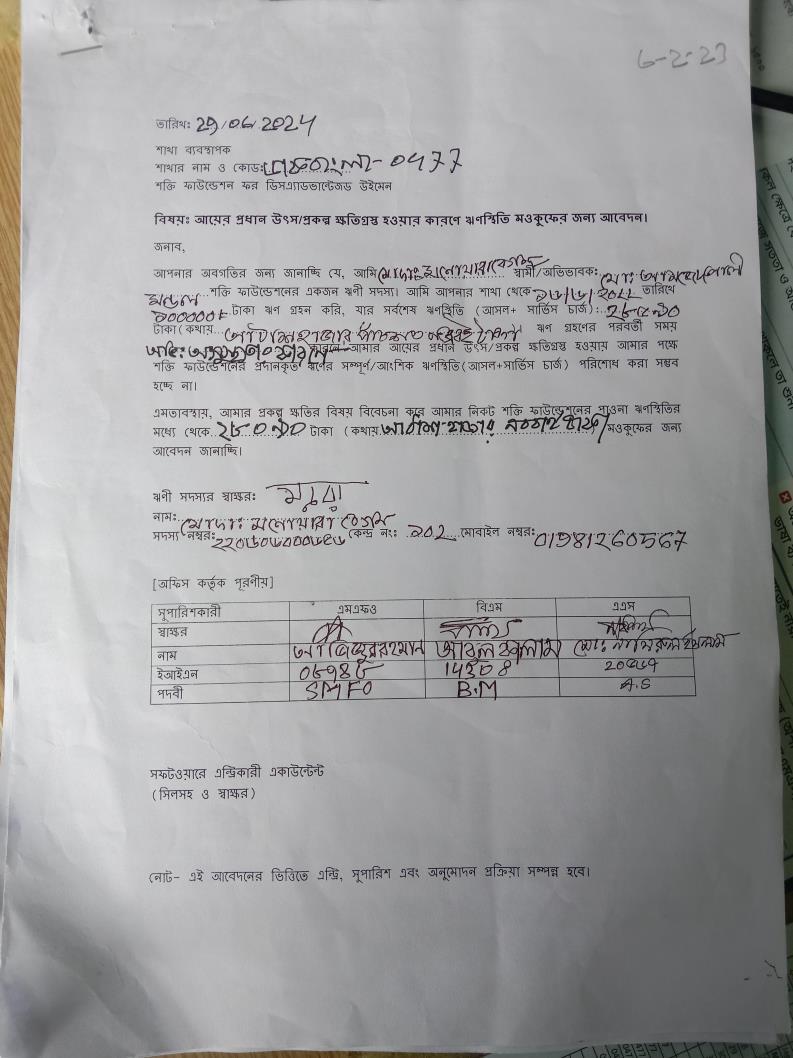 6-2-23
তারিখ: 29/06/2024
শাখা ব্যবস্থাপক
শাখার নাম ও কোড: 0477
শক্তি ফাউন্ডেশন ফর ডিসএ্যাডভান্টেজড উইমেন
বিষয়: আয়ের প্রধান উৎস/প্রকল্প ক্ষতিগ্রস্থ হওয়ার কারণে ঋণস্থিতি মওকুফের জন্য আবেদন।
জনাব,
আপনার অবগতির জন্য জানাচ্ছি যে, আমি মোছাঃ মনোয়ারা বেগম স্বামী/অভিভাবক: মোঃ
মন্ডল শক্তি ফাউন্ডেশনের একজন ঋণী সদস্য। আমি আপনার শাখা থেকে তারিখে
টাকা ঋণ গ্রহন করি, যার সর্বশেষ ঋণস্থিতি (আসল+ সার্ভিস চার্জ):
টাকা(কথায় ঋণ গ্রহণের পরবর্তী সময়
কারনে আমার আয়ের প্রধান উৎস/প্রকল্প ক্ষতিগ্রস্থ হওয়ায় আমার পক্ষে
শক্তি ফাউন্ডেশনের প্রদানকৃত ঋণের সম্পূর্ণ/আংশিক ঋণস্থিতি(আসল+সার্ভিস চার্জ) পরিশোধ করা সম্ভব
হচ্ছে না।
এমতাবস্থায়, আমার প্রকল্প ক্ষতির বিষয় বিবেচনা করে আমার নিকট শক্তি ফাউন্ডেশনের পাওনা ঋণস্থিতির
মধ্যে থেকে ২৮০৯০ টাকা (কথায় আটাশ হাজার নব্বই টাকা) মওকুফের জন্য
আবেদন জানাচ্ছি।
ঋণী সদস্যর স্বাক্ষর:
নাম: মোছাঃ মনোয়ারা বেগম
সদস্য নম্বর: কেন্দ্র নং: ১০২ মোবাইল নম্বর: 01981260567
[অফিস কর্তৃক পূরণীয়]
সুপারিশকারী এমএফও বিএম এএস
স্বাক্ষর
নাম আজিজুর রহমান আবুল কালাম মোঃ নাসিরুল ইসলাম
ইআইএন
পদবী SMFO B.M A.S
সফটওয়ারে এন্ট্রিকারী একাউন্টেন্ট
(সিলসহ ও স্বাক্ষর)
নোট- এই আবেদনের ভিত্তিতে এন্ট্রি, সুপারিশ এবং অনুমোদন প্রক্রিয়া সম্পন্ন হবে।